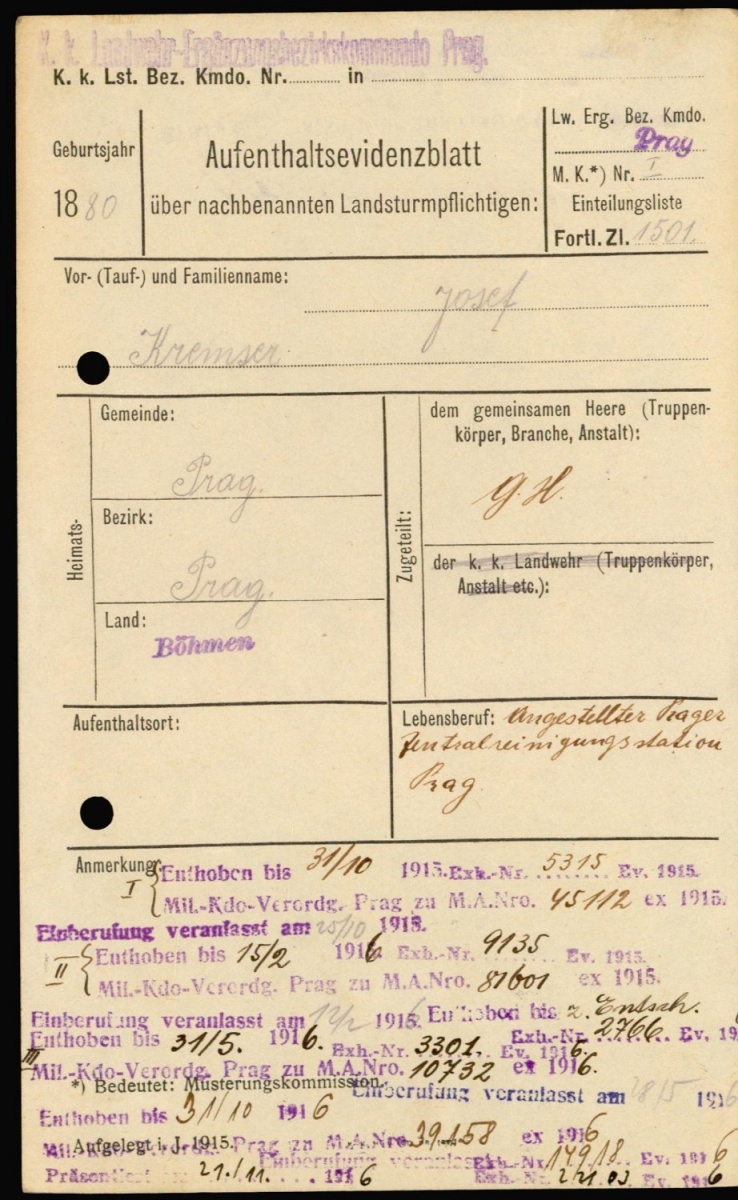 K. k. Landwehr-Ergänzungsbezirkskommando Prag.
K. k. Lst. Bez. Kmdo. Nr. in
Geburtsjahr
1880
Aufenthaltsevidenzblatt
über nachbenannten Landsturmpflichtigen:
Lw. Erg. Bez. Kmdo.
Prag
M. K.*) Nr. I
Einteilungsliste
Fortl. Zl. 1501.
Vor- (Tauf-) und Familienname:
Josef
Kremser
Heimats-
Gemeinde:
Prag.
Bezirk:
Prag.
Land:
Böhmen
Zugeteilt:
dem gemeinsamen Heere (Truppen-
körper, Branche, Anstalt):
g. H.
der k. k. Landwehr (Truppenkörper,
Anstalt etc.):
Aufenthaltsort:
Lebensberuf: Angestellter Prager
Zentralreinigungsstation
Prag
Anmerkung:
I Enthoben bis 31/10 1915. Exh.-Nr. 5315 Ev. 1915.
Mil.-Kdo-Verordg. Prag zu M.A.Nro. 45112 ex 1915.
Einberufung veranlasst am 25/10 1915.
II Enthoben bis 15/2 1916 Exh.-Nr. 9135 Ev. 1915.
Mil.-Kdo-Verordg. Prag zu M.A.Nro. 81601 ex 1915.
Einberufung veranlasst am 12/2 1916 Enthoben bis z. Entsch.
Exh.-Nr. 2766 Ev. 19
III Enthoben bis 31/5. 1916. Exh.-Nr. 3301. Ev. 1916.
Mil.-Kdo-Verordg. Prag zu M.A.Nro. 10732 ex 1916.
*) Bedeutet: Musterungskommission.
Einberufung veranlasst am 28/5 1916
Enthoben bis 31/10 1916
Aufgelegt i. J. 1915.
Mil.-Kdo-Verordg. Prag zu M.A.Nro. 39158 ex 1916
Einberufung veranlasst
Exh.-Nr. 14918 Ev. 1916
Präsentiert am 21./11. 1916
Exh.-Nr. 22103 Ev. 1916